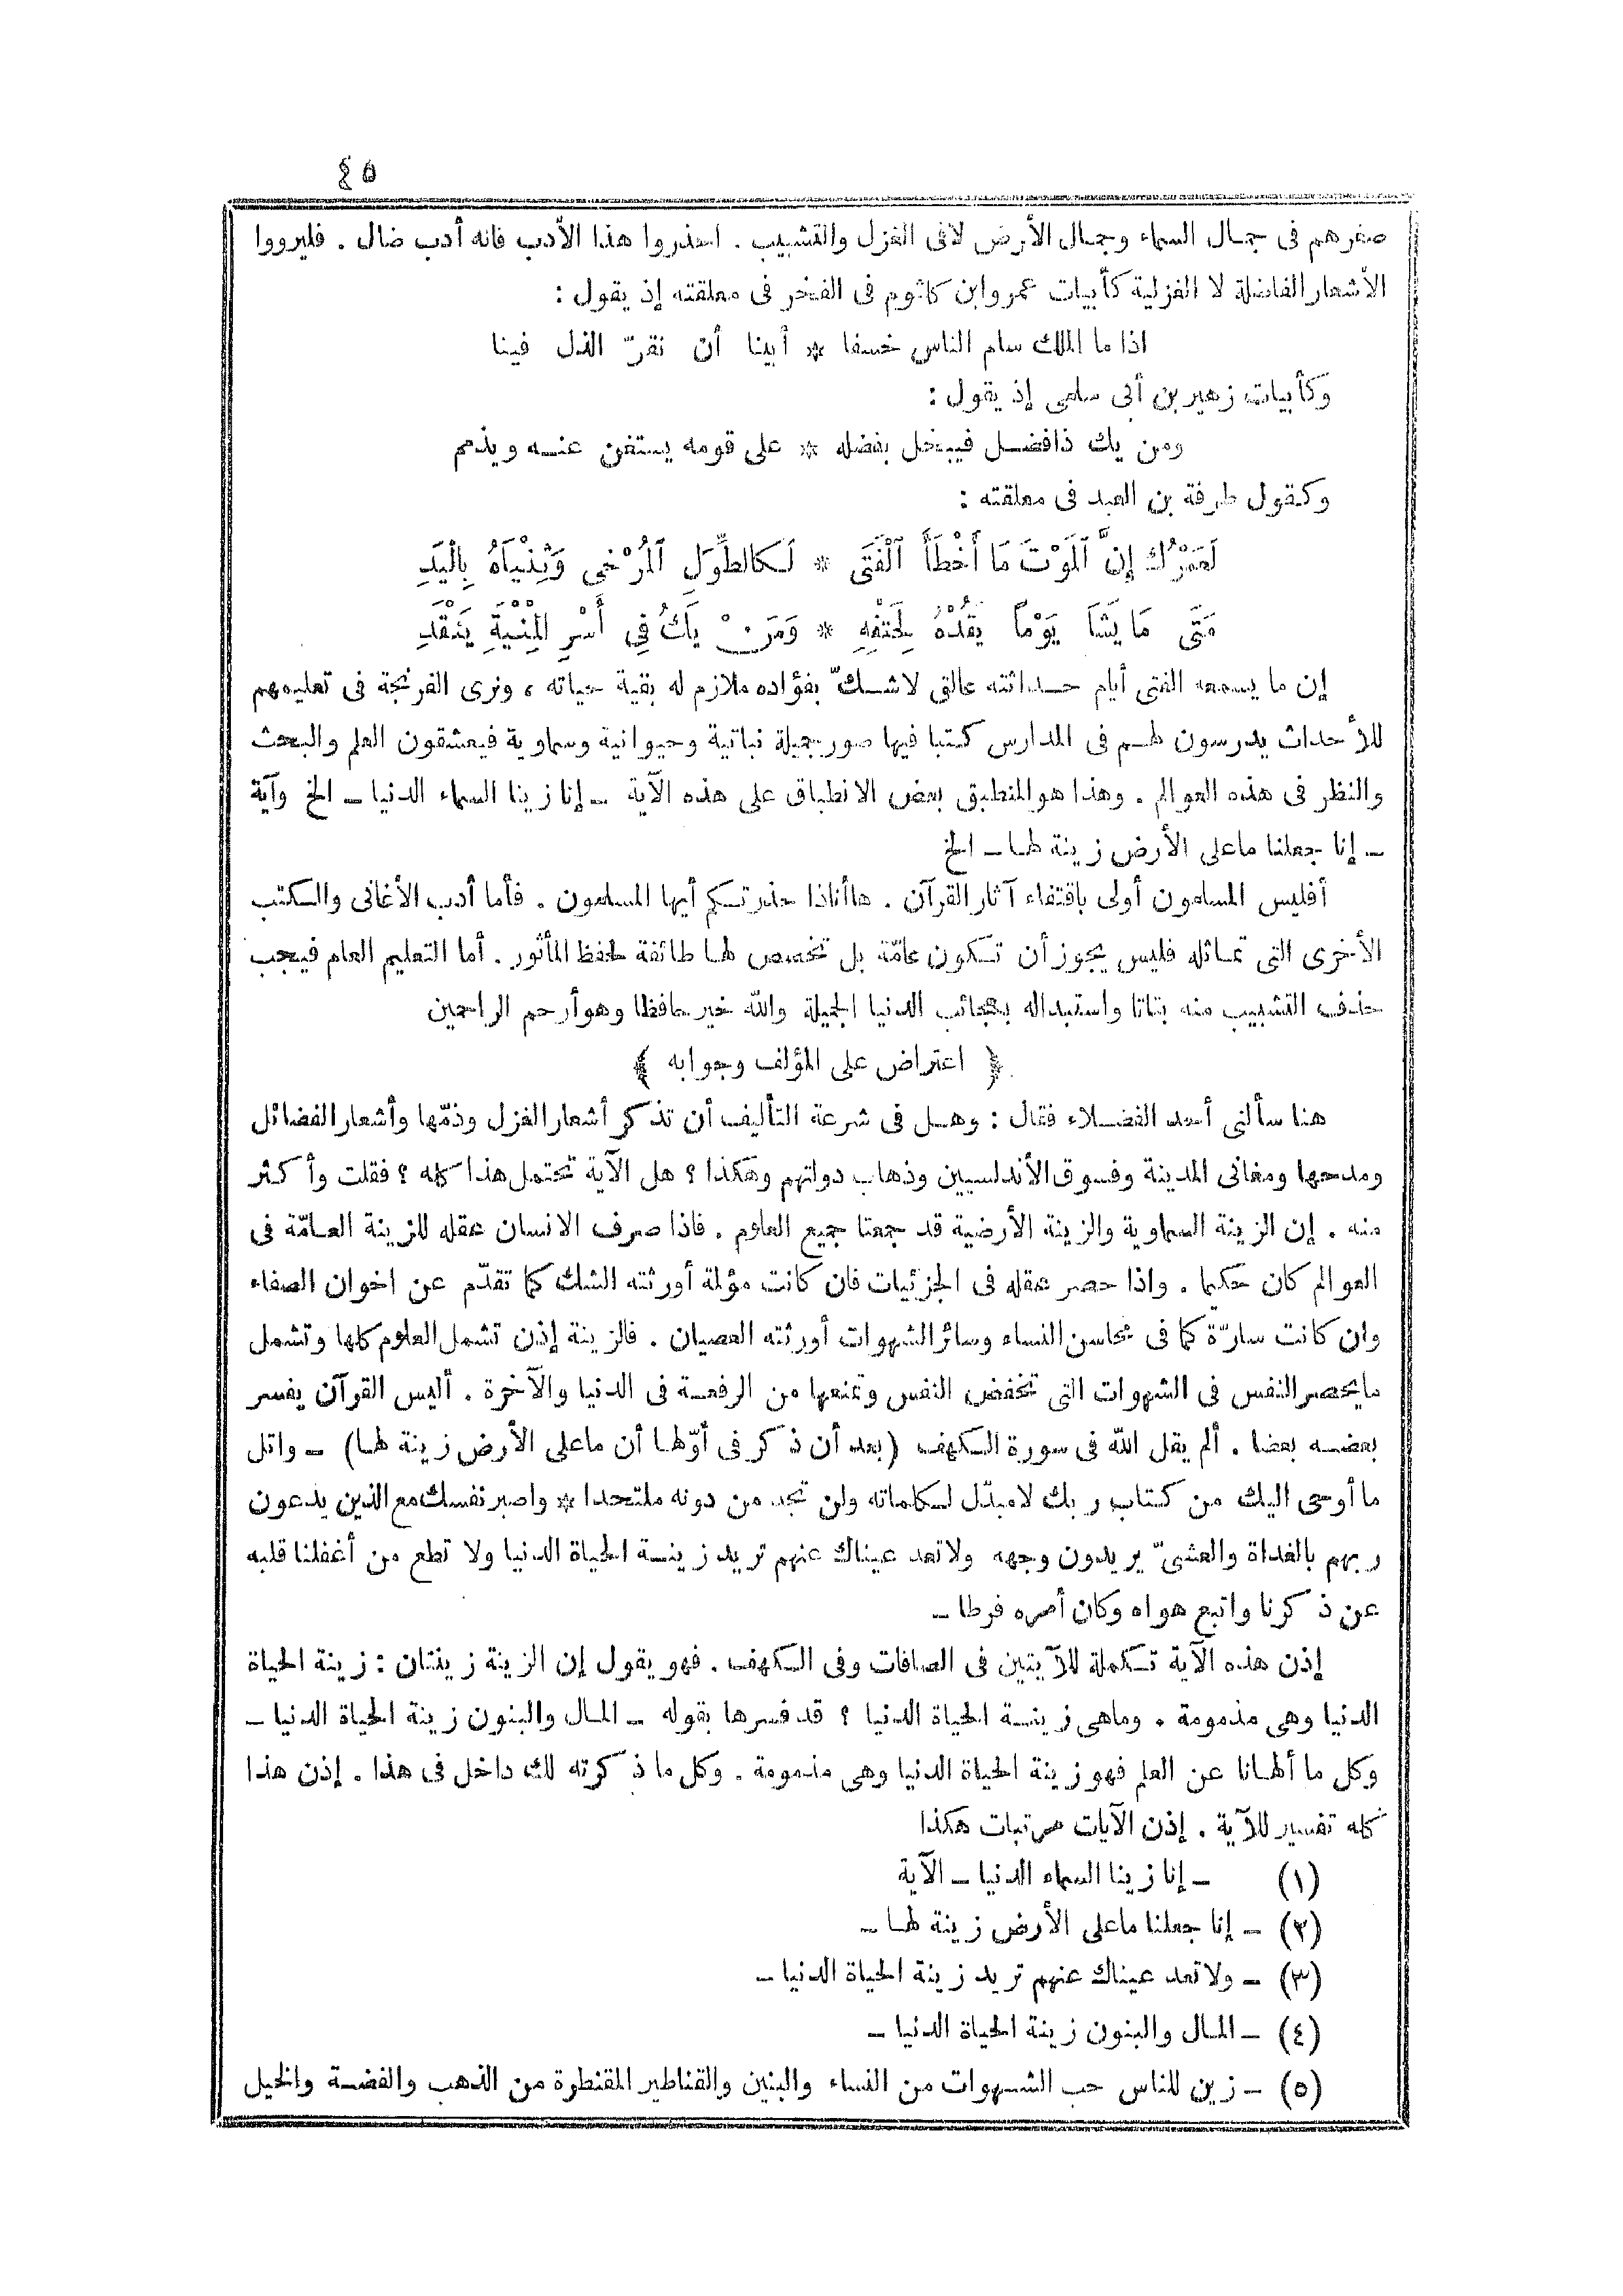 ٤٥
صغرهم فى جمال السماء وجمال الأرض لا فى الغزل والتشبيب . احذروا هذا الأدب فانه أدب ضال . فليرووا
الأشعار الفاضلة لا الغزلية كأبيات عمرو ابن كلثوم فى الفخر فى معلقته إذ يقول :
اذا ما الملك سام الناس خسفا * أبينا أن نقرّ الذل فينا
وكأبيات زهير بن أبى سلمى إذ يقول :
ومن يك ذا فضل فيبخل بفضله * على قومه يستغن عنه ويذمم
وكقول طرفة بن العبد فى معلقته :
لَعَمْرُكَ إِنَّ ٱلْمَوْتَ مَا أَخْطَأَ ٱلْفَتَى * لَكالطِّوَلِ ٱلْمُرْخَى وَثِنْيَاهُ بِالْيَدِ
مَتَى مَا يَشَأْ يَوْماً يَقُدْهُ لِحَتْفِهِ * وَمَنْ يَكُ فِي أَسْرِ الْمَنِيَّةِ يَنْقَدِ
إن ما يسمعه الفتى أيام حداثته عالق لاشكّ بفؤاده ملازم له بقية حياته ، ونرى الفرنجة فى تعليمهم
للأحداث يدرسون لهم فى المدارس كتبا فيها صور جميلة نباتية وحيوانية وسماوية فيعشقون العلم والبحث
والنظر فى هذه العوالم . وهذا هو المنطبق بعض الانطباق على هذه الآية ــ إنا زينا السماء الدنيا ــ الخ وآية
ــ إنا جعلنا ماعلى الأرض زينة لها ــ الخ
أفليس المسلمون أولى باقتفاء آثار القرآن . هاأناذا حذرتكم أيها المسلمون . فأما أدب الأغانى والكتب
الأخرى التى تماثله فليس يجوز أن تكون عامّة بل تخصص لها طائفة لحفظ المأثور . أما التعليم العام فيجب
حذف التشبيب منه بتاتا واستبداله بعجائب الدنيا الجميلة والله خير حافظا وهو أرحم الراحمين
﴿ اعتراض على المؤلف وجوابه ﴾
هنا سألنى أحد الفضلاء فقال : وهل فى شرعة التأليف أن تذكر أشعار الغزل وذمّها وأشعار الفضائل
ومدحها ومغانى المدينة وفسوق الأندلسيين وذهاب دولتهم وهكذا ؟ هل الآية تحتمل هذا كله ؟ فقلت وأكثر
منه . إن الزينة السماوية والزينة الأرضية قد جمعتا جميع العلوم . فاذا صرف الانسان عقله للزينة العامّة فى
العوالم كان حكيما . واذا حصر عقله فى الجزئيات فان كانت مؤلمة أورثته الشك كما تقدّم عن اخوان الصفاء
وان كانت سارّة كما فى محاسن النساء وسائر الشهوات أورثته العصيان . فالزينة إذن تشمل العلوم كلها وتشمل
مايحصر النفس فى الشهوات التى تخفض النفس وتمنعها من الرفعة فى الدنيا والآخرة . أليس القرآن يفسر
بعضه بعضا . ألم يقل الله فى سورة الكهف (بعد أن ذكر فى أوّلها أن ماعلى الأرض زينة لها) ــ واتل
ما أوحى اليك من كتاب ربك لامبدّل لكلماته ولن تجد من دونه ملتحدا * واصبر نفسك مع الذين يدعون
ربهم بالغداة والعشىّ يريدون وجهه ولاتعد عيناك عنهم تريد زينة الحياة الدنيا ولا تطع من أغفلنا قلبه
عن ذكرنا واتبع هواه وكان أمره فرطا ــ
إذن هذه الآية تكملة للآيتين فى الصافات وفى الكهف . فهو يقول إن الزينة زينتان : زينة الحياة
الدنيا وهى مذمومة . وماهى زينة الحياة الدنيا ؟ قد فسرها بقوله ــ المال والبنون زينة الحياة الدنيا ــ
وكل ما ألهانا عن العلم فهو زينة الحياة الدنيا وهى مذمومة . وكل ما ذكرته لك داخل فى هذا . إذن هذا
كله تفسير للآية . إذن الآيات مرتبات هكذا
(١) ــ إنا زينا السماء الدنيا ــ الآية
(٢) ــ إنا جعلنا ماعلى الأرض زينة لها ــ
(٣) ــ ولاتعد عيناك عنهم تريد زينة الحياة الدنيا ــ
(٤) ــ المال والبنون زينة الحياة الدنيا ــ
(٥) ــ زين للناس حب الشهوات من النساء والبنين والقناطير المقنطرة من الذهب والفضة والخيل